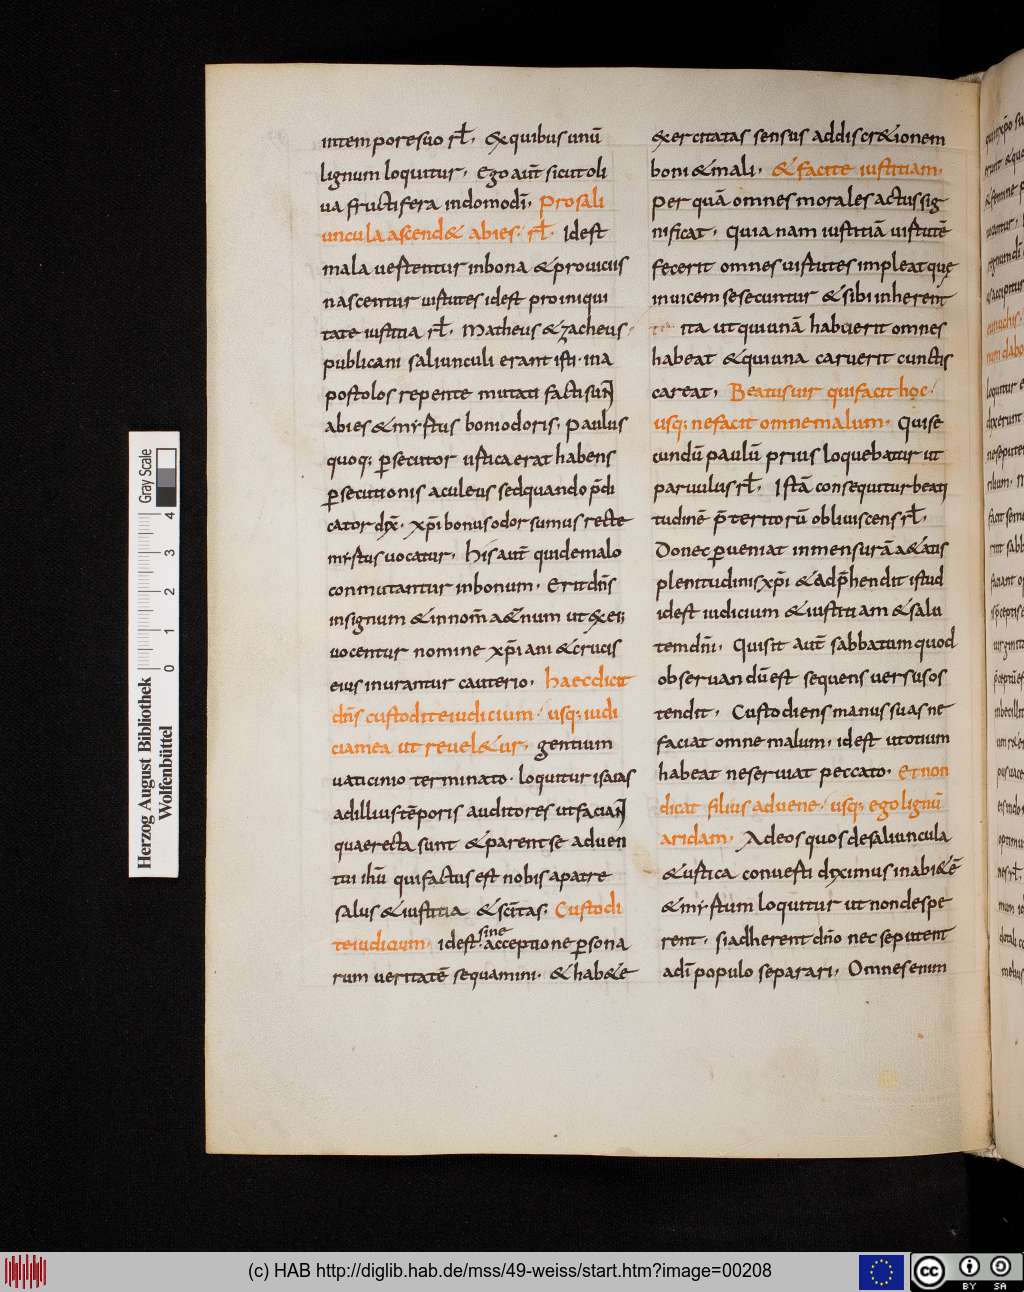 in tempore suo rł. Ex quibus unū
lignum loquitur. Ego aut̄ sicut oli
ua fructifera in domo dn̄i. Pro sali
uncula ascend& abies. rł. Idest
mala uertentur in bona & pro uiciis
nascentur uirtutes idest pro iniqui
tate iustitia rł. Matheus & zacheus
publicani saliunculi erant isti in a
postolos repente mutati facti sunt
abies & myrtus boni odoris. Paulus
quoq; ꝑsecutor urtica erat habens
ꝑsecutionis aculeus sed quando p̄di
cator dx̄. xp̄i bonus odor sumus recte
myrtus uocatur. His aut̄ qui de malo
conmutantur in bonum. Erit dn̄s
in signum & in nom̄ a&̄num ut & ex eis
uocentur nomine xp̄iani & crucis
eius inurantur cauterio. Haec dicit
dn̄s custodite iudicium. usq; iudi
cia mea ut reuel&ur. gentium
uaticinio terminato. loquitur isaias
ad illius tēporis auditores ut faciant
quae recta sunt & parent se aduen
tui ih̄u qui factus est nobis a patre
salus & iustitia & sc̄itas. Custodi
te iudicium. idest sine acceptione ꝑsona
rum ueritatē sequamini. & hab&e
exercitatas sensus ad discr&ionem
boni & mali. & facite iustitiam.
Per quā omnes morales actus sig
nificat. Quia nam iustitiā uirtutē
fecerit omnes uirtutes impleat quę
inuicem se secuntur & sibi inherent
ita ut qui unā habuerit omnes
habeat & qui una caruerit cunctis
careat. Beatus uir qui facit hoc.
usq; ne facit omne malum. Qui se
cundū paulū prius loquebatur ut
paruulus rł. Istā consequitur beati
tudinē p̄teritorū obliuiscens rł.
Donec ꝑueniat in mensurā a&atis
plenitudinis xp̄i & adp̄hendit istud
idest iudicium & iustitiam & salu
tem dn̄i. Quisit aut̄ sabbatum quod
obseruandū est sequens uersus os
tendit. Custodiens manus suas ne
faciat omne malum. idest ut otium
habeat ne seruiat peccato. Et non
dicat filius aduene. usq; ego lignū
aridam. Adeos quos de saliuncula
& urtica conuerti diximus in abi&ē
& myrtum loquitur ut non despe
rent. si adherent dn̄o nec se putent
a di populo separari. Omnes enim
Herzog August Bibliothek
Wolfenbüttel
Gray Scale
0 1 2 3 4
(c) HAB http://diglib.hab.de/mss/49-weiss/start.htm?image=00208
cc
BY SA